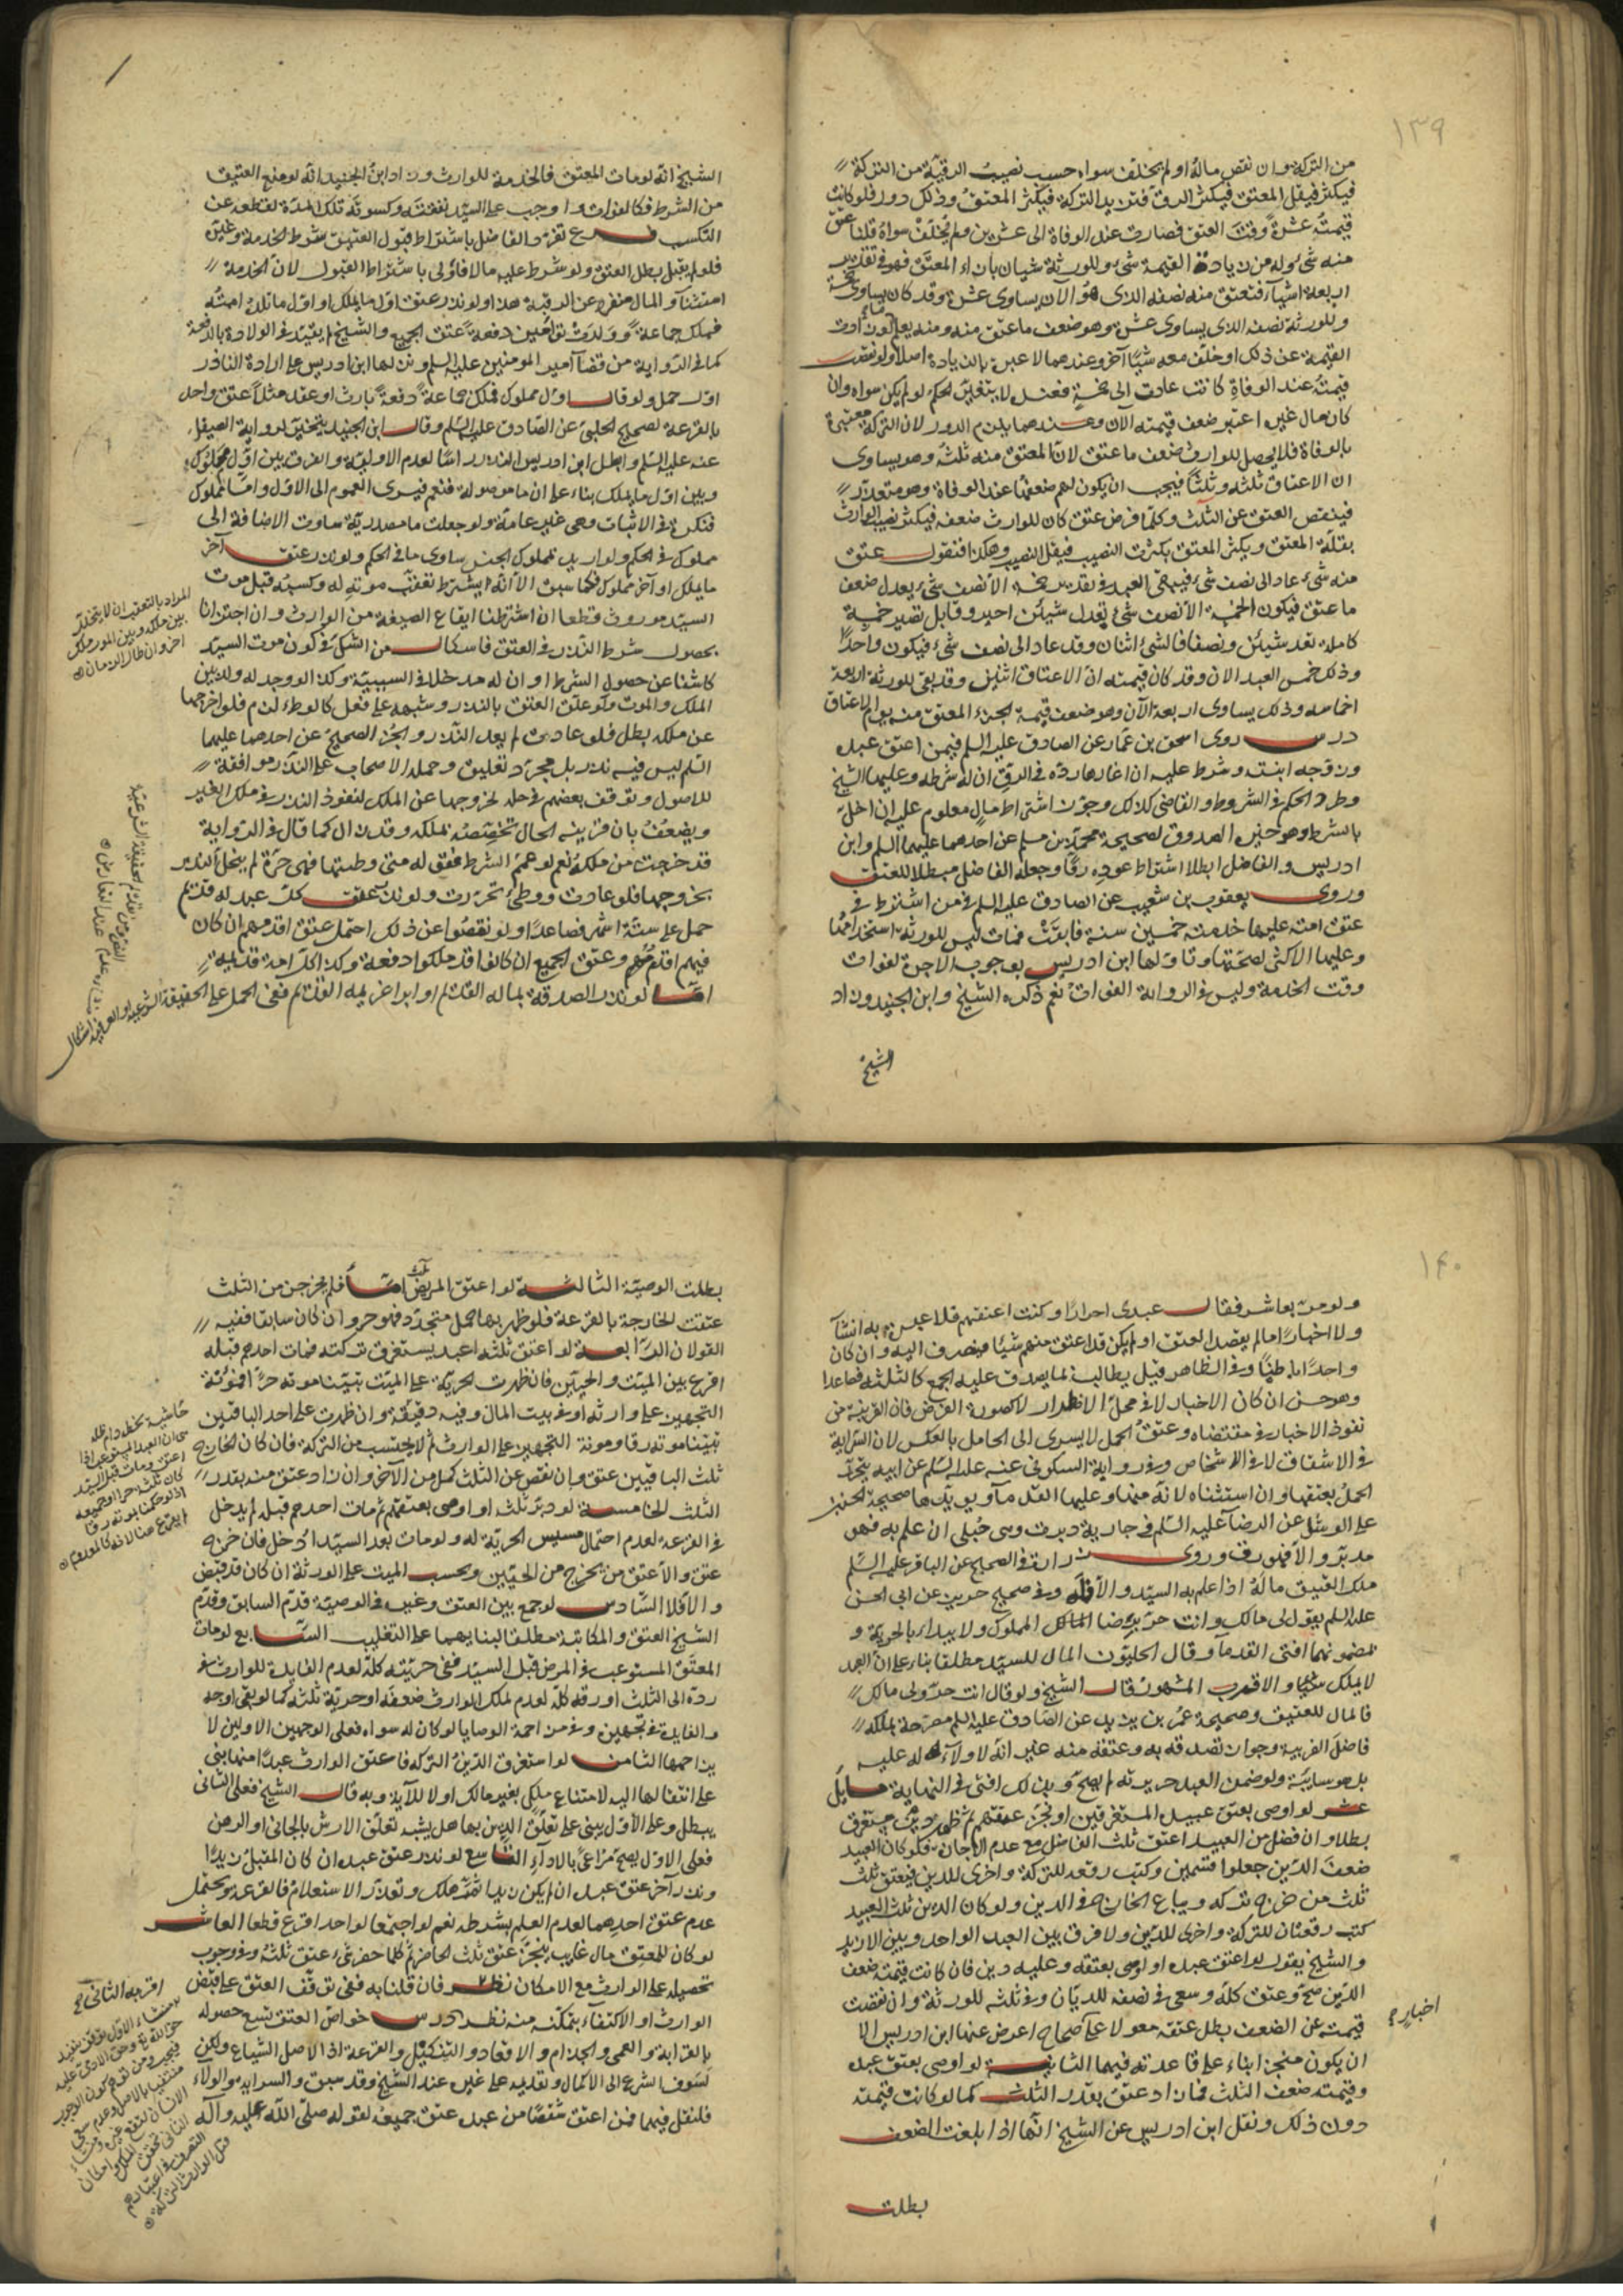 ١٣٩
من التركة وان نقص ماله او لم يخلف سواه حسب نصيب الرقية من التركة
فيكثر فيقل المعتق فيكثر الرق فتزيد التركة فيكثر المعتق وذلك دور فلو كانت
قيمته عشرة وقت العتق فصارت عند الوفاة الى عشرين ولم يخلف سواه قلنا عتق
منه شئ وله من زيادة القيمة شئ وللورثة شيان بازاء المعتق فهو في تقدير
اربعة اشياء فتعتق منه نصفه الذى هو الآن يساوى عشرة وقد كان يساوى خمسة
وللورثة نصفه الذى يساوى عشرة وهو ضعف ما عتق منه ومنه يعلم لو زادت
القيمة عن ذلك او خلف معه شيئا آخر وعندهما لا عبرة بالزيادة اصلا ولو نقصت
قيمته عند الوفاة كانت عادت الى خمسة فعنده لا يتغير الحكم لو لم يكن سواه وان
كان مال غيره اعتبر ضعف قيمته الآن وعندهما يلزم الدور لان التركة معتبرة
بالوفاة فلا يحصل للوارث ضعف ما عتق لان المعتق منه ثلثه وهو يساوى
ان الاعتاق ثلثه وثلثا فيجب ان يكون لهم ضعفها عند الوفاة وهو متعذر
فينقص العتق عن الثلث وكلما فرض عتق كان للوارث ضعفه فيكثر نصيب الوارث
بقلة المعتق ويكثر المعتق بكثرة النصيب فيقل النصيب وهكذا فنقول عتق
منه شئ عاد الى نصف شئ فيبقى العبد في تقدير خمسة الا نصف شئ يعدل ضعف
ما عتق فيكون الخمسة الا نصف شئ تعدل شيئين اجبر وقابل تصير خمسة
كاملة تعدل شيئين ونصفا فالشئ اثنان وقد عاد الى نصف شئ فيكون واحدا
وذلك خمس العبد الان وقد كان قيمته ان الاعتاق اثنين وقد بقى للورثة اربعة
اخماسه وذلك يساوى اربعة الآن وهو ضعف قيمة الجزء المعتق منه يوم الاعتاق
درس روى اسحق بن عمار عن الصادق عليه السلم فيمن اعتق عبده
وزوجه ابنته وشرط عليه ان اغارها رده في الرق ان له شرطه وعليها الشيخ
وطرد الحكم في الشروط والقاضى كذلك وجوز اشتراط مال معلوم عليه ان اخل
بالشرط وهو خيرة الصدوق لصحيحة محمد بن مسلم عن احدهما عليهما السلم وابن
ادريس والفاضل ابطلا اشتراط عوده رقا وجعله الفاضل مبطلا للعتق
وروى يعقوب بن شعيب عن الصادق عليه السلم في من اشترط في
عتق امته عليها خدمته خمسين سنة فابقت فمات ليس للورثة استخدامها
وعليها الاكثر لصحتها وتاولها ابن ادريس بوجوب الاجرة لفوات
وقت الخدمة وليس في الرواية الفوات نعم ذكره الشيخ وابن الجنيد وزاد
الشيخ
الشيخ انه لو مات المعتق فالخدمة للوارث وزاد ابن الجنيد انه لو منع العتيق
من الشرط فكالفوات واوجب على السيد نفقته وكسوته تلك المدة لقطعه عن
التكسب فرع تفرد الفاضل باشتراط قبول العتيق شرط الخدمة وغيره
فلو لم يقبل بطل العتق ولو شرط عليه مالا فاولى باشتراط القبول لان الخدمة
استثناء والمال متفرع عن الرقبة هذا ولو نذر عتق اول ما يملك او اول ما تلده امته
فملك جماعة وولدت توامين دفعة عتق الجميع والشيخ لم يقيد في الولادة بالدفعة
كما في الرواية من قضاء امير المومنين عليه السلم ونزلها ابن ادريس على ارادة الناذر
اول حمل ولو قال اول مملوك فملك جماعة دفعة بارث او عقد مثلا عتق واحد
بالقرعة لصحيح الحلبى عن الصادق عليه السلم وقال ابن الجنيد يتخير لرواية الصيقل
عنه عليه السلم وابطل ابن ادريس النذر راسا لعدم الاولية والفرق بين اول مملوك
وبين اول ما يملك بناء على ان ما موصولة فتعم فيسرى العموم الى الاول واما مملوك
فنكرة في الاثبات وهى غير عامة ولو جعلت ما مصدرية ساوت الاضافة الى
مملوك في الحكم ولو اريد بمملوك الجنس ساوى ما في الحكم ولو نذر عتق آخر
ما يملك او آخر مملوك فكما سبق الا انه يشترط تعقب موته له وكسبه قبل موت
السيد موروث قطعا ان اشترطنا ايقاع الصيغة من الوارث وان اجتزانا
بحصول شرط النذر في العتق فاشكال من الشك في كون موت السيد
كاشفا عن حصول الشرط او ان له مدخلا في السببية وكذا لو وجد له ولد بين
الملك والموت ولو علق العتق بالنذر وشبهه على فعل كالوطء لزم فلو اخرجها
عن ملكه بطل فلو عادت لم يعد النذر والخبر الصحيح عن احدهما عليهما
السلم ليس فيه نذر بل مجرد تعليق وحمله الاصحاب على النذر موافقة
للاصول وتوقف بعضهم في حله لخروجها عن الملك لنفوذ النذر في ملك الغير
ويضعف بان قرينة الحال تخصصه بملكه وقد زال كما قال في الرواية
قد خرجت من ملكه نعم لو عمم الشرط فقوله متى وطئتها فهى حرة لم ينحل النذر
بخروجها فلو عادت ووطئ تحررت ولو نذر عتق كل عبد له قديم
حمل على ستة اشهر فصاعدا ولو نقصوا عن ذلك احتمل عتق اقدمهم ان كان
فيهم اقدم وعتق الجميع ان كانوا قد ملكوا دفعة وكذا كل امة قديمة
اما لو نذر الصدقة بماله القديم او ابراء غريمه القديم ففى الحمل على الحقيقة الشرعية او العرفية اشكال
المراد بالتعقب ان لا يتخلل
بين ملكه وبين الموت ملك
اخر وان طال الزمان
١٤٠
ولو مر بعاشر فقال عبيدى احرار او كنت اعتقتهم فلا عبرة به انشاء
ولا اخبارا ما لم يقصد العتق او لم يكن قد اعتق منهم شيئا فينصرف اليه وان كان
واحدا باطنا وفي الظاهر قيل يطالب بما يصدق عليه الجمع كالثلثة فصاعدا
وهو حسن ان كان الاخبار لا في محل الاضطرار لا كصورة الفرض فان القرينة من
نفوذ الاخبار في مقتضاه وعتق الحمل لا يسرى الى الحامل بالعكس لان السراية
في الاشقاص لا في الاشخاص وفي رواية السكونى عنه عليه السلم عن ابيه يتحرر
الحمل بعتقها وان استثناه لانه منها وعليها القدماء ويويدها صحيحة الحسن
على الوشاء عن الرضا عليه السلم في جارية دبرت وهى حبلى ان علم به فهو
مدبر والا فهو رق وروى زرارة في الصحيح عن الباقر عليه السلم
ملك العتيق ماله اذا علم به السيد والا فله وفي صحيح حريز عن ابى الحسن
عليه السلم يقول لى مالك وانت حر برضا المملوك ولا يبداء بالحرية و
بمضمونهما افتى القدماء وقال الحليون المال للسيد مطلقا بناء على ان العبد
لا يملك شيئا والاقرب المشهور قال الشيخ ولو قال انت حر ولى مالك
فالمال للعتيق وصحيحة عمر بن يزيد عن الصادق عليه السلم مصرحة بملكه
فاضل الضريبة وجواز تصدقه به وعتقه منه غير انه لا ولاء له عليه
بل هو سايبة ولو ضمن العبد جريرته لم يصح وبذلك افتى في النهاية مسايل
عشر لو اوصى بعتق عبيده المستغرقين او نجز عتقهم ثم ظهر دين مستغرق
بطلا وان فضل من العبيد اعتق ثلث الفاضل مع عدم الاجازة فلو كان العبيد
ضعف الدين جعلوا قسمين وكتب رقعة للتركة واخرى للدين فيعتق ثلث
ثلث من خرج تركة ويباع الخارج في الدين ولو كان الدين ثلث العبيد
كتب رقعتان للتركة واخرى للدين ولا فرق بين العبد الواحد وبين الازيد
والشيخ يقول لو اعتق عبده او اوصى بعتقه وعليه دين فان كانت قيمته ضعف
الدين صح وعتق كله وسعى في نصفه للديان وفي ثلثه للورثة وان نقصت
قيمته عن الضعف بطل عتقه معولا على صحاح اعرض عنها ابن ادريس الا
ان يكون منجزا بناء على قاعدته فيهما الثانية لو اوصى بعتق عبده
وقيمته ضعف الثلث فمازاد عتق بقدر الثلث كما لو كانت قيمته
دون ذلك ونقل ابن ادريس عن الشيخ انها اذا بلغت الضعف
بطلت
بطلت الوصية الثالثة لو اعتق المريض ثلث اماء فلم يخرجن من الثلث
عتقت الخارجة بالقرعة فلو ظهر بها حمل متجدد فهو حر وان كان سابقا ففيه
القولان الرابعة لو اعتق ثلثة اعبد يستغرق تركته فمات احدهم قبله
اقرع بين الميت والحيين فان ظهرت الحرية على الميت تبينا موته حرا فمؤنة
التجهيز على وارثه او في بيت المال وفيه دقيقة وان ظهرت على احد الباقين
تبينا موته رقا ومونة التجهيز على الوارث ثم لا يحتسب من التركة فان كان الخارج
ثلث الباقيين عتق وان نقص عن الثلث كمل من الآخر وان زاد عتق منه بقدر
الثلث الخامسة لو دبر ثلثة او اوصى بعتقهم ثم مات احدهم قبله لم يدخل
في القرعة لعدم احتمال مسيس الحرية له ولو مات بعد السيد ادخل فان خرج
عتق والا عتق من يخرج من الحيين ويحسب الميت على الورثة ان كان قد قبض
والا فلا السادس لو جمع بين العتق وغيره في الوصية قدم السابق وقدم
الشيخ العتق والمكاتبة مطلقا لبنايهما على التغليب السابع لو مات
المعتق المستوعب في المرض قبل السيد ففى حريته كله لعدم الفايدة للوارث في
رده الى الثلث او رقه كله لعدم ملك الوارث ضعفه او حرية ثلثه كما لو بقى اوجه
والفايدة في تجهيزه وفي مزاحمة الوصايا لو كان له سواه فعلى الوجهين الاولين لا
يزاحمها الثامن لو استغرق الدين التركة فاعتق الوارث عبدا منها بنى
على انتقالها اليه لامتناع ملك بغير مالك او لا للآية وبه قال الشيخ فعلى الثانى
يبطل وعلى الاول يبنى على تعلق الدين بها هل يشبه تعلق الارش بالجانى او الرهن
فعلى الاول يصح مراعى بالاداء التاسع لو نذر عتق عبده ان كان المقبل زيدا
ونذر آخر عتق عبده ان لم يكن زيدا ثم هلك وتعذر الاستعلام فالقرعة ويحتمل
عدم عتق احدهما لعدم العلم بشرطه نعم لو اجتمعا لواحد اقرع قطعا العاشر
لو كان للمعتق مال غايب ينجز عتق ثلث الحاضر ثم كلما حضر شئ عتق ثلثه وفي وجوب
تحصيله على الوارث مع الامكان نظر فان قلنا به ففى توقف العتق على قبض
الوارث او الاكتفاء بتمكنه منه نظر درس خواص العتق تسع حصوله
بالقرابة والعمى والجذام والاقعاد والتنكيل والقرعة اذ الاصل الشياع ولكن
تشوف الشرع الى الاكمال وتقديمه على غيره عند الشيخ وقد سبق والسراية والولاء
فلنقل فيهما فمن اعتق شقصا من عبده عتق جميعه لقوله صلى الله عليه وآله